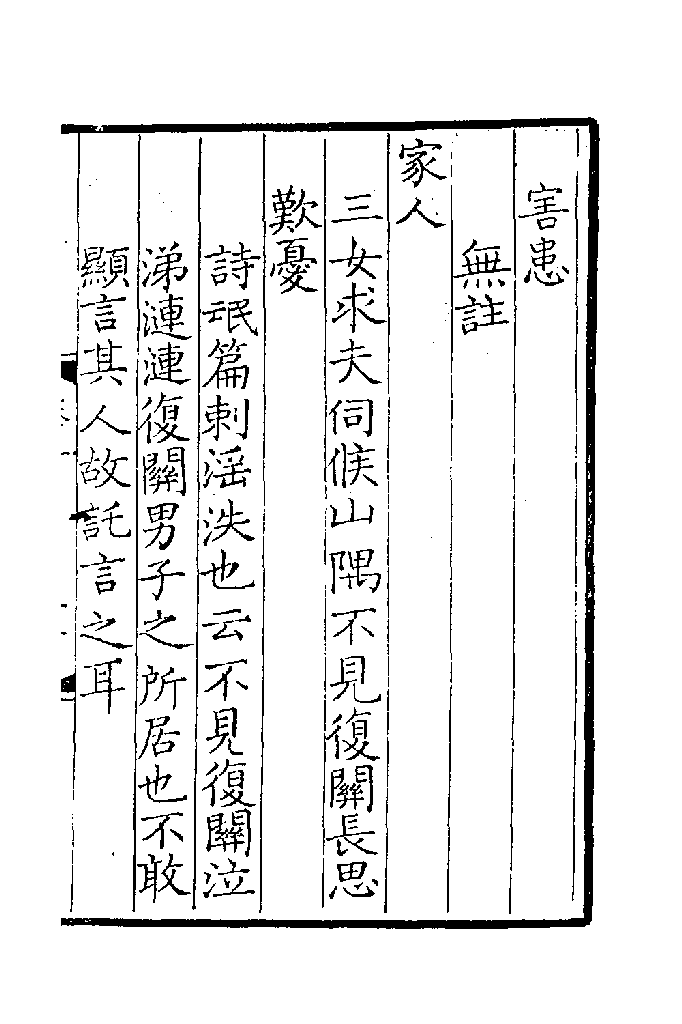 害患
無註
家人
三女求夫伺候山隅不見復關長思
歎憂
詩氓篇刺淫泆也云不見復關泣
涕漣漣復關男子之所居也不敢
顯言其人故託言之耳